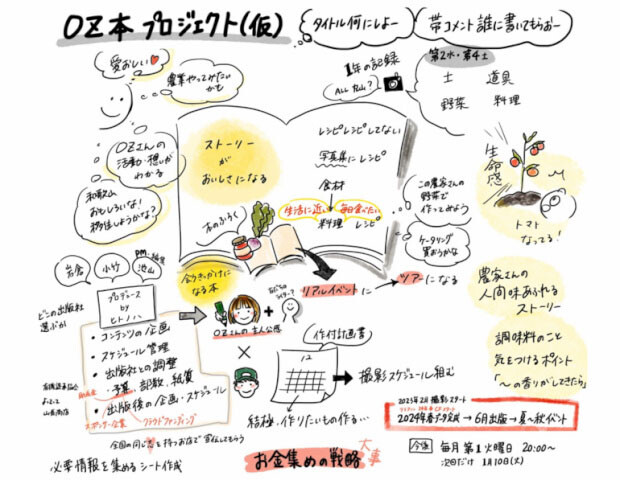 OZ本プロジェクト(仮)
タイトル何にしよー
帯コメント誰に書いてもらおー
愛おしい
農業やってみたいかも
OZさんの
活動・想いが
わかる
和歌山
おもしろいな!
移住しようかな?
1年の記録
ALL 丸山?
第2水・第4土
土 道具
野菜 料理
ストーリー
が
おいしさになる
レシピレシピしてない
写真集にレシピ
食材
生活に近い 毎日食べたい
料理 レシピ
本のふろく
この農家さんの
野菜で
作ってみよう
ケータリング
買おうかな
生命感
トマト
なってる!
岩倉
小竹
PM
池山
プロデュース
by
ヒトノハ
どこの出版社
選ぶか
会うきっかけに
なる本
リアルイベントに
ツアーになる
OZさんの主人公感
・コンテンツの企画
・スケジュール管理
・出版社との調整
・予算、部数、紙質
・出版後の企画・スケジュール
スポンサー企業
クラウドファンディング
今回の同じ想を持つお店で宣伝してもらう
必要情報を集めるシート作成
作付計画書
12
結極、作りたいもの作る…
撮影スケジュール組む
お金集めの戦略
大事
農家さんの
人間味あふれる
ストーリー
調味料のこと
気をつけるポイント
「〜の香りがしてきたら」
2023年2月 撮影スタート
2024年春データ完成→6月出版→夏〜秋イベント
今後
毎月第1火曜日 20:00〜
次回だけ 1月10日(火)